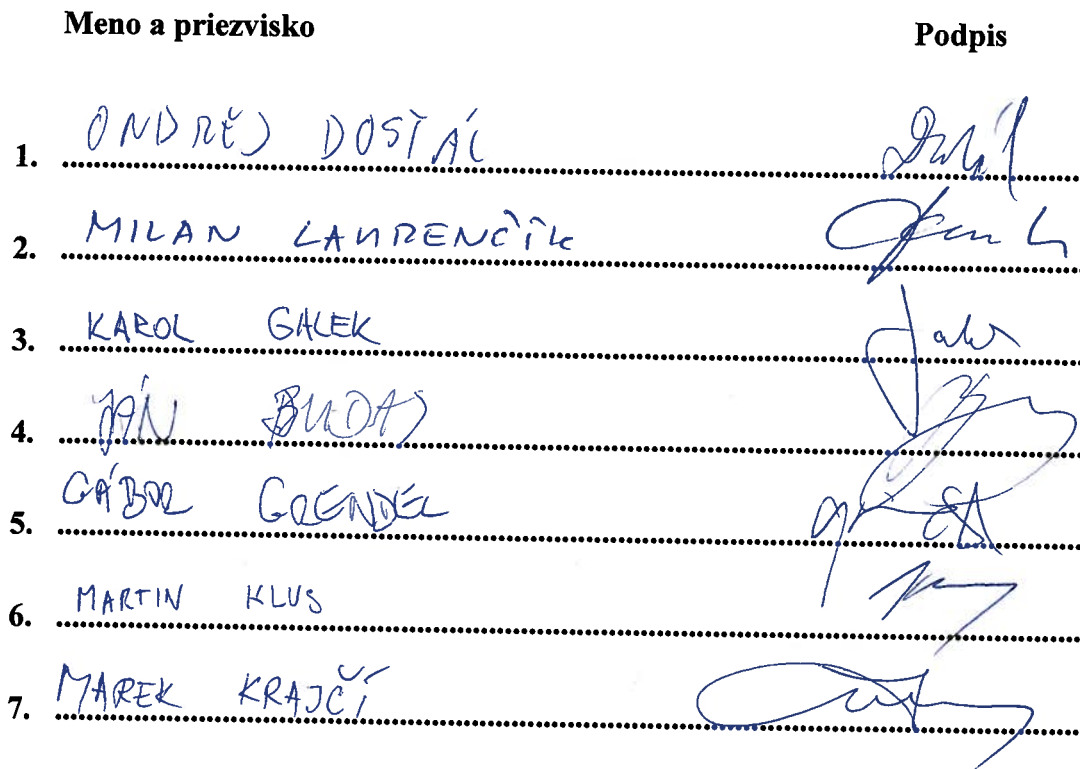 Meno a priezvisko Podpis
1. ONDREJ DOSTÁL
2. MILAN LAURENČÍK
3. KAROL GALEK
4. JÁN BUDAJ
5. GÁBOR GRENDEL
6. MARTIN KLUS
7. MAREK KRAJČÍ